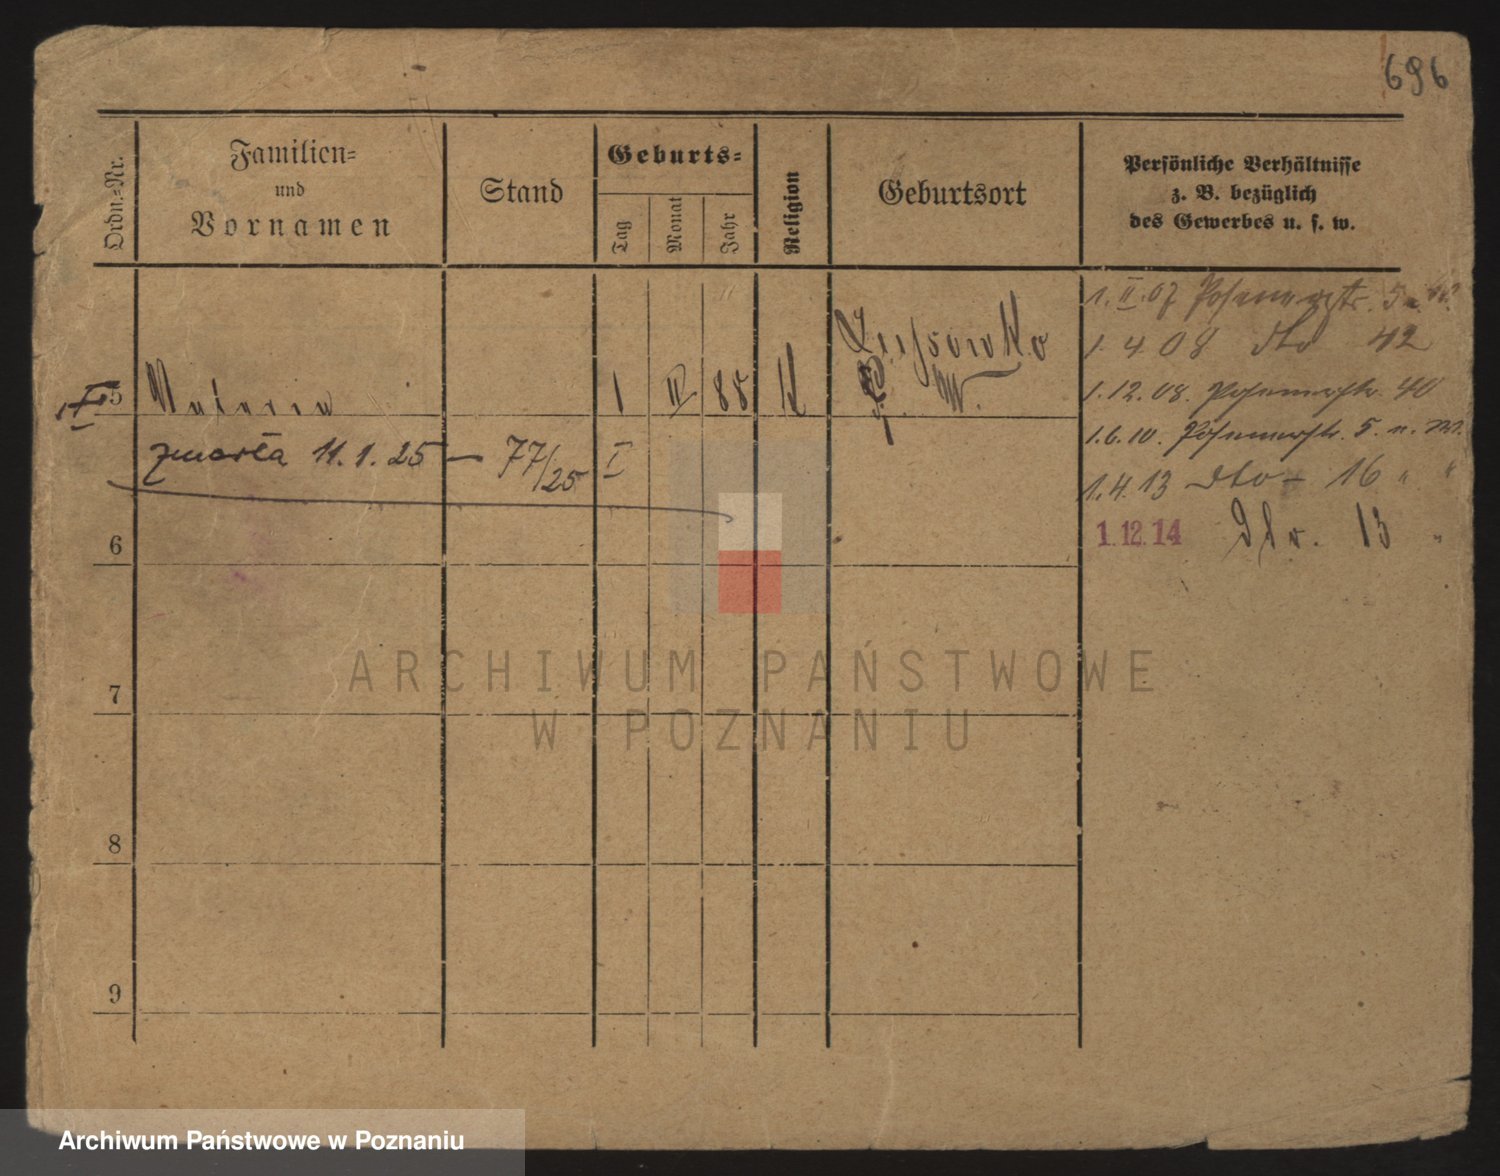 696
Ordn.-Nr.
Familien-
und
Vornamen
Stand
Geburts-
Tag
Monat
Jahr
Religion
Geburtsort
Persönliche Verhältnisse
z. B. bezüglich
des Gewerbes u. s. w.
1. II. 07 Posenerstr. 5
1. 4. 08 dto 42
5
1 88 K
W.
1.12.08. Posenerstr. 40
zmarła 11.1.25 — 77/25 I
1.6.10. Posenerstr. 5.
1.4.13 dto - 16 " "
1.12.14 13 "
6
7
8
9
ARCHIWUM PAŃSTWOWE
W POZNANIU
Archiwum Państwowe w Poznaniu